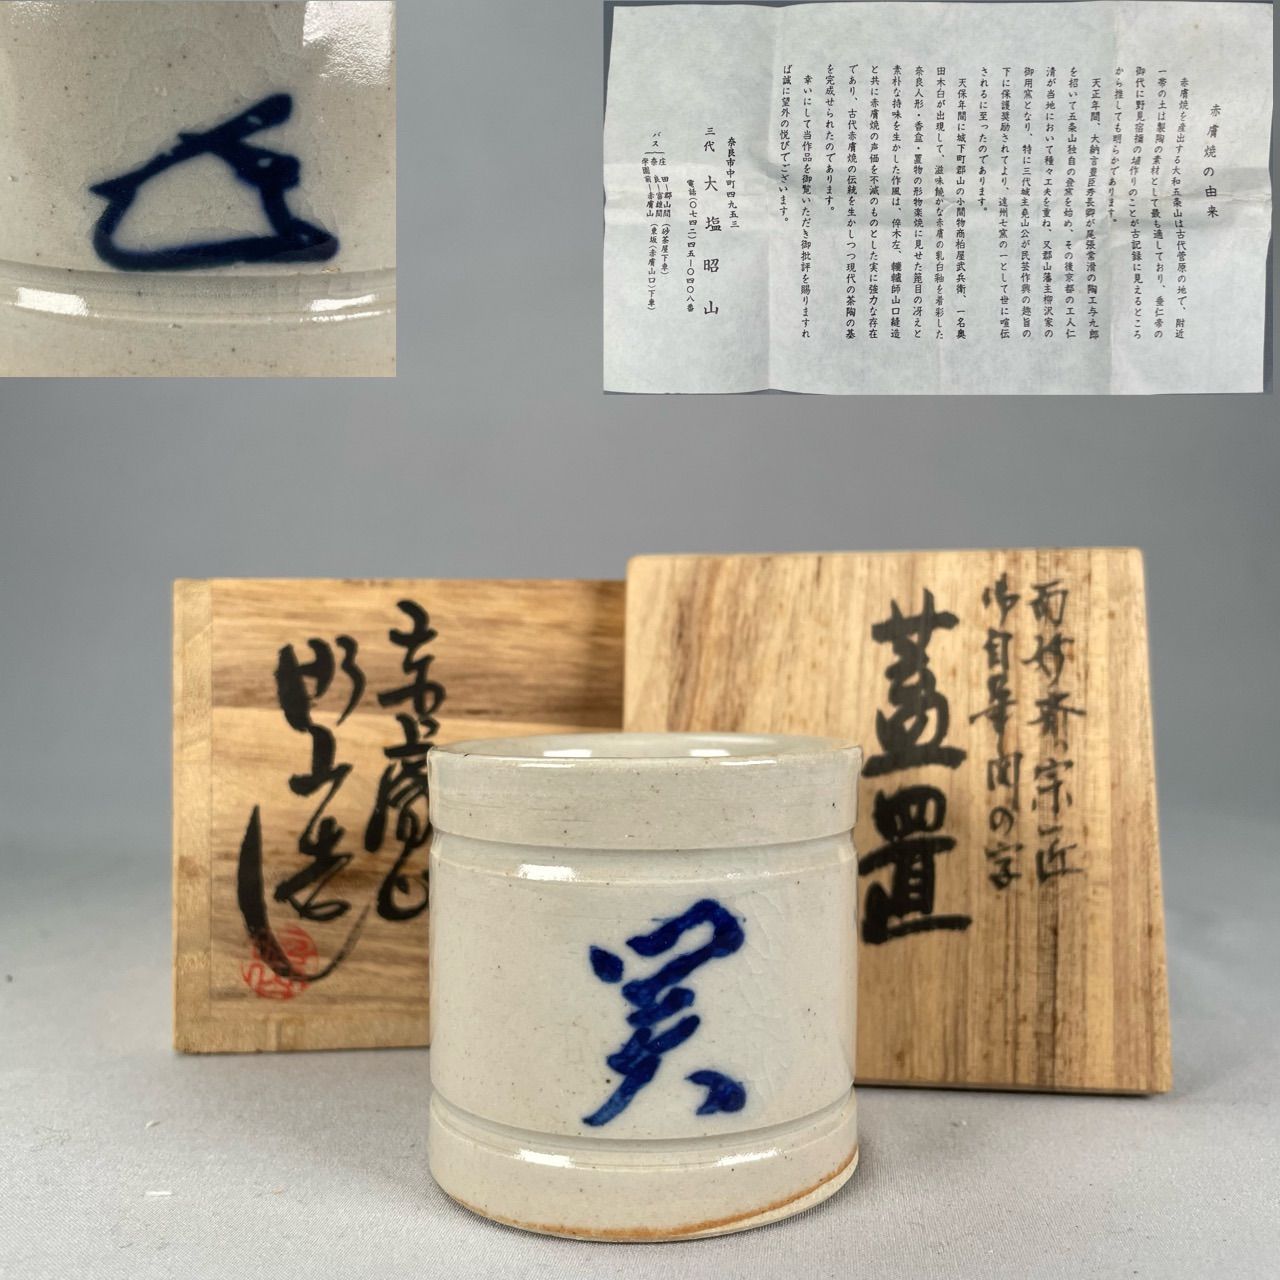 赤膚焼の由来
赤膚焼を産出する大和五条山は古代菅原の地で、附近
一帯の土は製陶の素材として最も適しており、垂仁帝の
御代に野見宿禰の埴作りのことが古記録に見えるところ
から推しても明らかであります。
天正年間、大納言豊臣秀長郷が尾張常滑の陶工与九郎
を招いて五条山独自の登窯を始め、その後京都の工人仁
清が当地において種々工夫を重ね、又郡山藩主柳沢家の
御用窯となり、特に三代城主堯山公が民芸作興の趣旨の
下に保護奨励されてより、遠州七窯の一として世に喧伝
されるに至ったのであります。
天保年間に城下町郡山の小間物商柏屋武兵衛、一名奥
田木白が出現して、滋味饒かな赤膚の乳白釉を着彩した
奈良人形・香盒・置物の形物楽焼に見せた箆目の冴えと
素朴な持味を生かした作風は、倅木左、轆轤師山口縫造
と共に赤膚焼の声価を不滅のものとした実に強力な存在
であり、古代赤膚焼の伝統を生かしつつ現代の茶陶の基
を完成せられたのであります。
幸いにして当作品を御覧いただき御批評を賜りますれ
ば誠に望外の悦びでございます。
奈良市中町四九五三
電話(〇七四二)四五ー〇四〇八番
三代 大塩昭山
バス
庄田ー郡山間(砂茶屋下車)
奈良ー富雄間
学園前ー赤膚山(東坂(赤膚山口)下車)
而妙斎宗匠
御自筆関の字
蓋置
赤膚山
昭山造
関